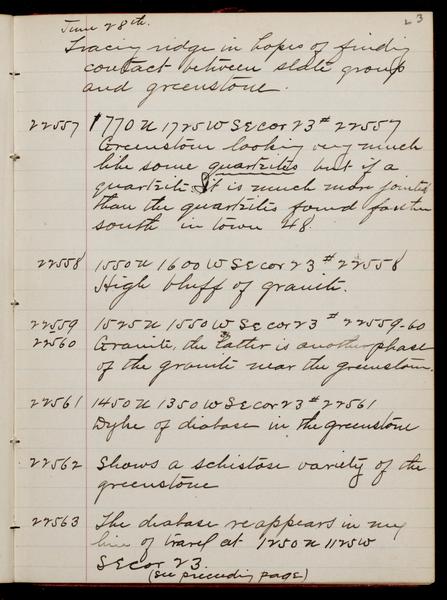 23
June 28th.
Tracing ridge in hopes of finding
contact between slate group
and greenstone.
22557 1770 N 1725 W SE cor 23 # 22557
Greenstone looking very much
like some quartzites but if a
quartzite it is much more jointed
than the quartzites found farther
south in town 48.
22558 1550 N 1600 W SE cor 23 # 22558
High bluff of granite.
22559 1525 N 1550 W SE cor 23 # 22559-60
22560 Granite, the latter is another phase
of the granite near the greenstone.
22561 1450 N 1350 W SE cor 23 # 22561
Dyke of diabase in the greenstone
22562 Shows a schistose variety of the
greenstone
22563 The diabase reappears in my
line of travel at 1250 N 1125 W
SE cor 23.
(see preceding page)